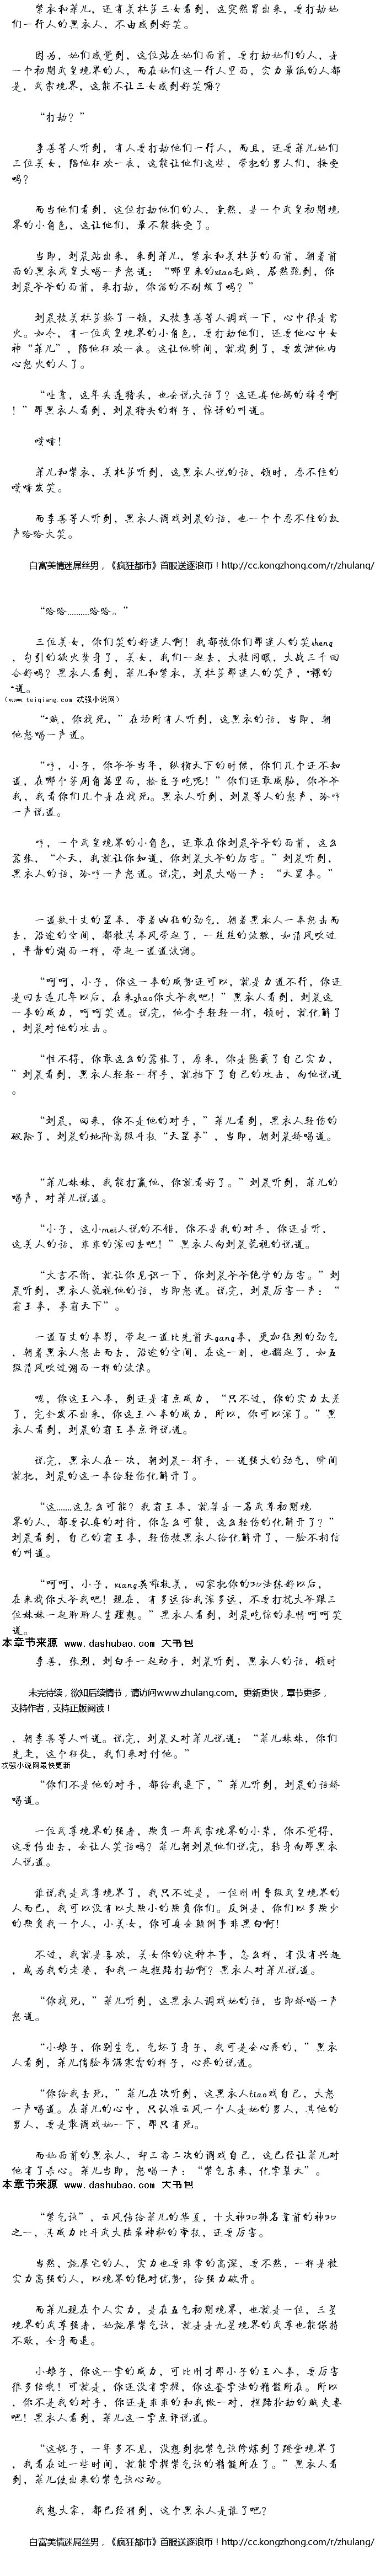 紫衣和菲儿，还有美杜莎三女看到，这突然冒出来，要打劫她
们一行人的黑衣人，不由感到好笑。
因为，她们感觉到，这位站在她们面前，要打劫她们的人，是
一个初期武皇境界的人，而在她们这一行人里面，实力最低的人都
是，武宗境界，这能不让三女感到好笑嘛？
“打劫？”
李善等人听到，有人要打劫他们一行人，而且，还要菲儿她们
三位美女，陪他狂欢一夜，这能让他们这些，带把的男人们，接受
吗？
而当他们看到，这位打劫他们的人，竟然，是一个武皇初期境
界的小角色，这让他们，最不能接受了。
当即，刘晨站出来，来到菲儿，紫衣和美杜莎的面前，朝着前
面的黑衣武皇大喝一声怒道：“哪里来的xiao毛贼，居然跑到，你
刘晨爷爷的面前，来打劫，你活的不耐烦了吗？”
刘晨被美杜莎揍了一顿，又被李善等人调戏一下，心中很是窝
火。如今，有一位武皇境界的小角色，要打劫他们，还要他心中女
神“菲儿”，陪他狂欢一夜。这让他瞬间，就找到了，要发泄他内
心怒火的人了。
“哇靠，这年头连猪头，也会说大话了？这还真他妈的稀奇啊
！”那黑衣人看到，刘晨猪头的样子，惊讶的叫道。
噗嗤！
菲儿和紫衣，美杜莎听到，这黑衣人说的话，顿时，忍不住的
噗嗤发笑。
而李善等人听到，黑衣人调戏刘晨的话，也一个个忍不住的放
声哈哈大笑。
白富美情迷屌丝男，《疯狂都市》首服送逐浪币！http://cc.kongzhong.com/r/zhulang/
“哈哈………哈哈。”
三位美女，你们笑的好迷人啊！我都被你们那迷人的笑sheng
，勾引的欲火焚身了，美女，我们一起去，大被同眠，大战三千回
合好吗？黑衣人看到，菲儿和紫衣，美杜莎那迷人的笑声，*裸的
*道。
（www.teiqiang.com 忒强小说网）
“*贼，你找死，”在场所有人听到，这黑衣的话，当即，朝
他怒喝一声道。
“哼，小子，你爷爷当年，纵横天下的时候，你们几个还不知
道，在哪个茅厕角落里面，捡豆子吃呢！”你们还敢威胁，你爷爷
我，我看你们几个是在找死。黑衣人听到，刘晨等人的怒声，冷哼
一声说道。
哼，一个武皇境界的小角色，还敢在你刘晨爷爷的面前，这么
嚣张，“今天，我就让你知道，你刘晨大爷的厉害。”刘晨听到，
黑衣人的话，冷哼一声怒道。说完，刘晨大喝一声：“天罡拳。”
一道数十丈的罡拳，带着凶狂的劲气，朝着黑衣人一拳怒击而
去，沿途的空间，都被其拳风带起了，一丝丝的波散，如清风吹过
，平静的湖面一样，带起一道道波澜。
“呵呵，小子，你这一拳的威势还可以，就是力道不行，你还
是回去连几年以后，在来zhao你大爷我吧！”黑衣人看到，刘晨这
一拳的威力，呵呵笑道。说完，他含手轻轻一挥，顿时，就化解了
，刘晨对他的攻击。
“怪不得，你敢这么的嚣张了，原来，你是隐藏了自己实力，
”刘晨看到，黑衣人轻轻一挥手，就挡下了自己的攻击，向他说道
。
“刘晨，回来，你不是他的对手，”菲儿看到，黑衣人轻伤的
破除了，刘晨的地阶高级斗技“天罡拳”，当即，朝刘晨娇喝道。
“菲儿妹妹，我能打赢他，你就看好了。”刘晨听到，菲儿的
喝声，对菲儿说道。
“小子，这小mei人说的不错，你不是我的对手，你还是听，
这美人的话，乖乖的滚回去吧！”黑衣人向刘晨藐视的说道。
“大言不惭，就让你见识一下，你刘晨爷爷绝学的厉害。”刘
晨听到，黑衣人藐视他的话，当即怒道。说完，刘晨厉害一声：“
霸王拳，拳霸天下”。
一道百丈的拳影，带起一道比先前天gang拳，更加狂烈的劲气
，朝着黑衣人怒击而去，沿途的空间，在这一刻，也翻起了，如五
级清风吹过湖面一样的波浪。
呢，你这王八拳，到还是有点威力，“只不过，你的实力太差
了，完全发不出来，你这王八拳的威力，所以，你可以滚了。”黑
衣人看到，刘晨的霸王拳点评说道。
说完，黑衣人在一次，朝刘晨一挥手，一道强大的劲气，瞬间
就把，刘晨的这一拳给轻伤化解开了。
“这……这怎么可能？我霸王拳，就算是一名武尊初期境
界的人，都要认真的对待，你怎么可能，这么轻伤的化解开了？”
刘晨看到，自己的霸王拳，轻伤被黑衣人给化解开了，一脸不相信
的叫道。
“呵呵，小子，xiang英雄救美，回家把你的口口法练好以后，
在来找你大爷我吧！现在，有多远给我滚多远，不要打扰大爷跟三
位妹妹一起聊聊人生理想。”黑衣人看到，刘晨吃惊的表情呵呵笑
道。
本章节来源 www.dashubao.com 大书包
李善，张烈，刘白手一起动手，刘晨听到，黑衣人的话，顿时
未完待续，欲知后续情节，请访问www.zhulang.com。更新更快，章节更多，
支持作者，支持正版阅读！
，朝李善等人叫道。说完，刘晨又对菲儿说道：“菲儿妹妹，你们
先走，这个狂徒，我们来对付他。”
忒强小说网最快更新
“你们不是他的对手，都给我退下，”菲儿听到，刘晨的话娇
喝道。
一位武尊境界的强者，欺负一群武宗境界的小辈，你不觉得，
这要传出去，会让人笑话吗？菲儿朝刘晨他们说完，转身向那黑衣
人说道。
谁说我是武尊境界了，我只不过是，一位刚刚晋级武皇境界的
人而已，我可以没有以大欺小的欺负你们。反倒是，你们以多欺少
的欺负我一个人，小美女，你可真会颠倒事非黑白啊！
不过，我就是喜欢，美女你的这种本事，怎么样，有没有兴趣
，成为我的老婆，和我一起拦路打劫啊？黑衣人对菲儿说道。
“你找死，”菲儿听到，这黑衣人调戏她的话，当即娇喝一声
怒道。
“小娘子，你别生气，气坏了身子，我可是会心疼的，”黑衣
人看到，菲儿俏脸布满寒霜的样子，心疼的说道。
“你给我去死，”菲儿在次听到，这黑衣人tiao戏自己，大怒
一声喝道。在菲儿的心中，只认准云风一个人是她的男人，其他的
男人，要是敢调戏她一下，那只有死。
而她面前的黑衣人，却三番二次的调戏自己，这已经让菲儿对
他有了杀心。菲儿当即，怒喝一声：“紫气东来，化掌裂天”。
本章节来源 www.dashubao.com 大书包
“紫气诀”，云风传给菲儿的华夏，十大神口口排名靠前的神口口
之一，其威力比斗武大陆最神秘的帝技，还要厉害。
当然，施展它的人，实力也要非常的高深，要不然，一样是被
实力高强的人，以境界的绝对优势，给强力破开。
而菲儿现在个人实力，是在五气初期境界，也就是一位，三星
境界的武尊强者，她施展紫气诀，就是是九星境界的武尊也能保持
不败，全身而退。
小娘子，你这一掌的威力，可比刚才那小子的王八拳，要厉害
很多倍哦！可就是，你还没有掌握，你这套掌法的精髓所在。所以
，你不是我的对手，你还是乖乖的和我做一对，拦路抢劫的贼夫妻
吧！黑衣人看到，菲儿这一掌点评说道。
“这妮子，一年多不见，没想到把紫气诀修炼到了登堂境界了
，我看在过一些时间，就能掌握紫气诀的精髓所在了。”黑衣人看
到，菲儿使出来的紫气诀心动。
我想大家，都已经猜到，这个黑衣人是谁了吧？
白富美情迷屌丝男，《疯狂都市》首服送逐浪币！http://cc.kongzhong.com/r/zhulang/